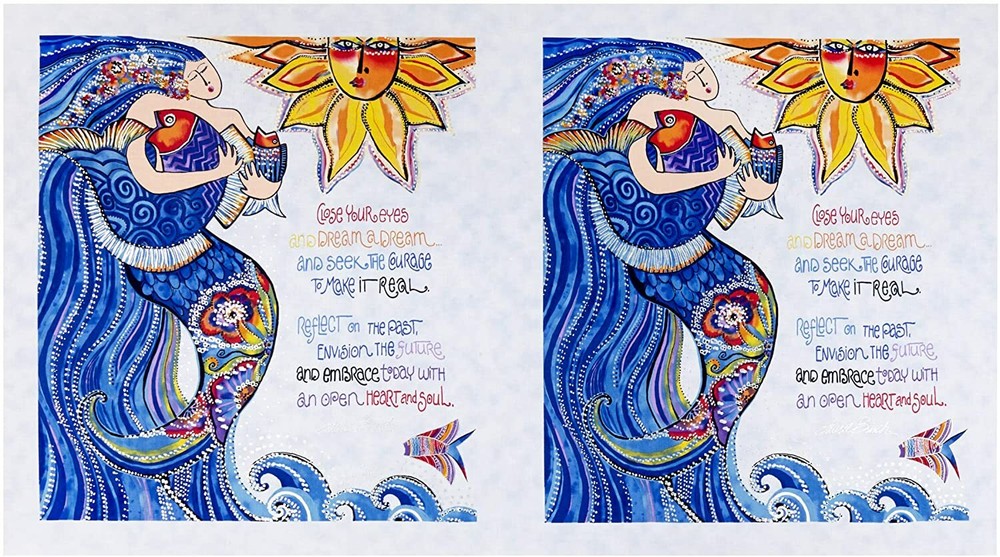 Close your eyes
and Dream a Dream...
and seek the courage
to make it real.
Reflect on the past,
envision the future,
and embrace today with
an open heart and soul.
Close your eyes
and Dream a Dream...
and seek the courage
to make it real.
Reflect on the past,
envision the future,
and embrace today with
an open heart and soul.